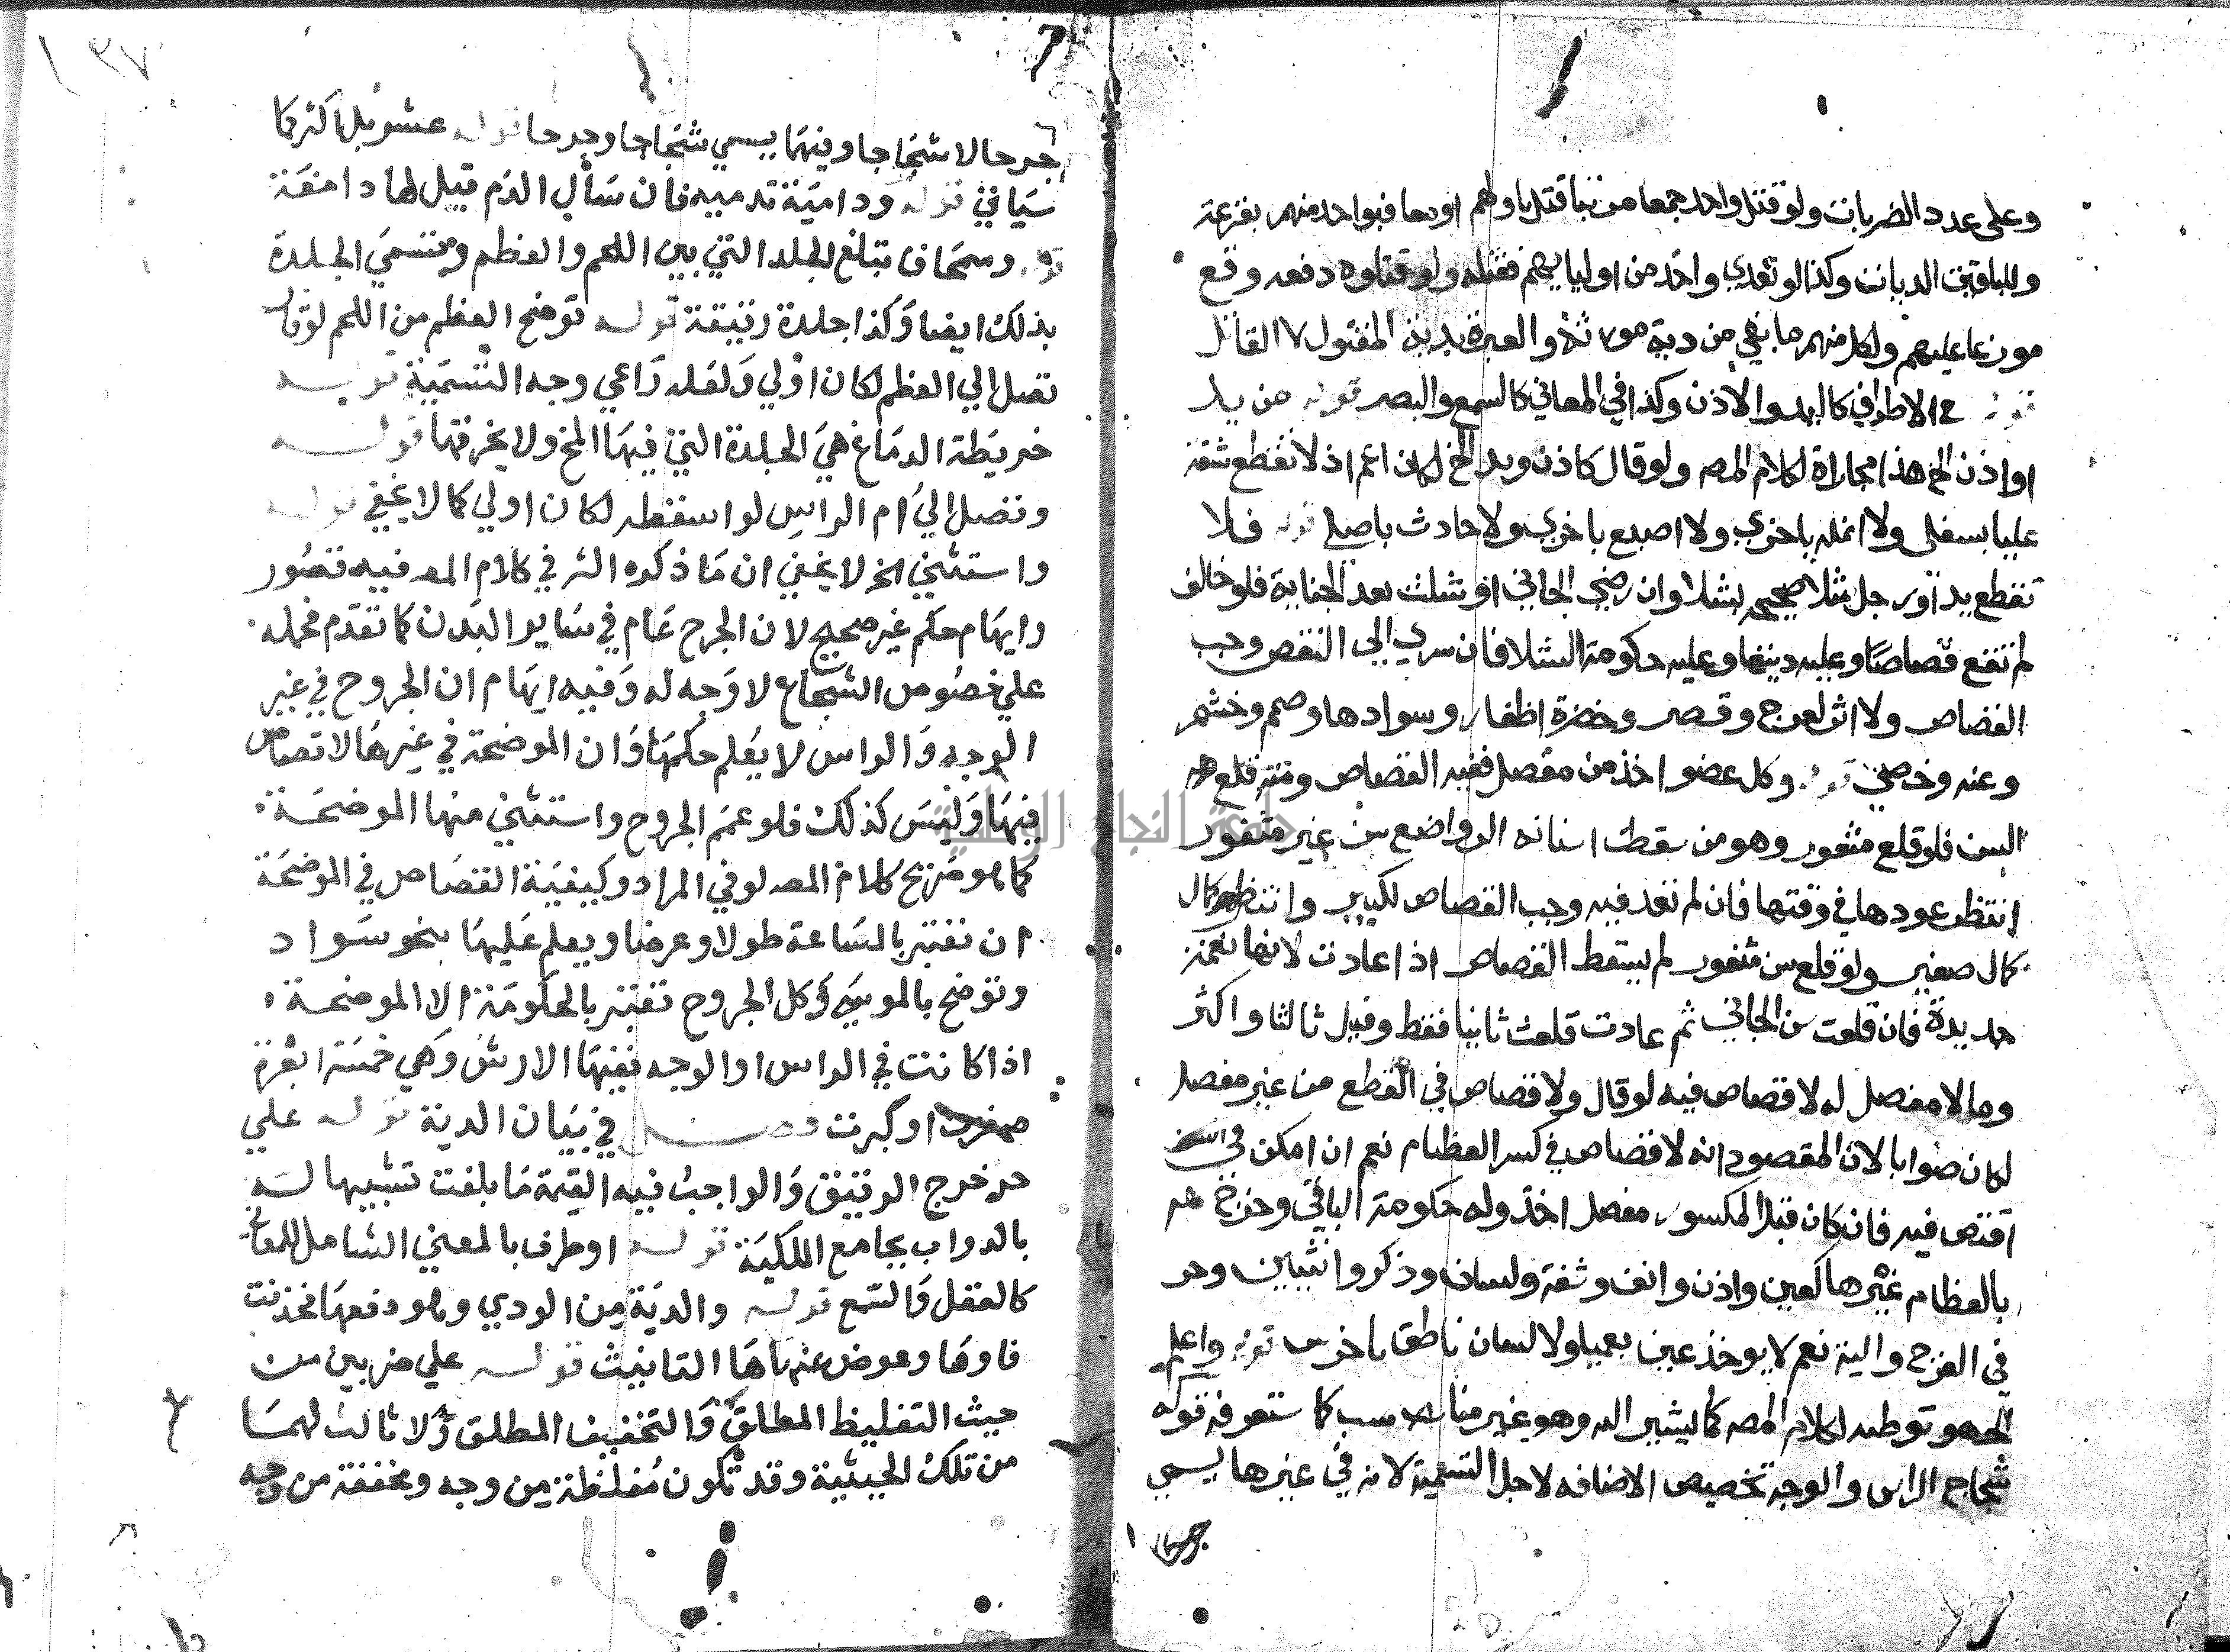 وعلى عدد الضربات ولو قتل واحد جمعا مرتبا قتل باولهم او معا فبواحد منهم بقرعة
وللباقين الديات وكذا لو تعدي واحد من اوليايهم فقتله ولو قتلوه دفعه وقع
موزعا عليهم ولكل منهم ما بقي من دية مورثه والعبرة بدية المقتول لا القاتل
قوله في الاطراف كاليد والاذن وكذا في المعاني كالسمع والبصر قوله من يد
او اذن الخ هذا مجاراة لكلام المصـ ولو قال كاذن ويد الخ لكان اعم اذ لا تقطع شفة
عليا بسفلى ولا انملة باخري ولا اصبع باخري ولا حادث باصلي قوله فلا
تقطع يد او رجل مثلا صحيحة بشلا وان رضي الجاني او شلت بعد الجناية فلو خالف
لم تقع قصاصا وعليه ديتها وعليه حكومة الشلا فان سري الي النفس وجب
القصاص ولا اثر لعرج وقصر وخضرة اظفار وسوادها وصمم وخشم
وعنه وخصي قوله وكل عضو اخذ من مفصل ففيه القصاص ومنه قلع
السن فلو قلع مثغور وهو من سقطت اسنانه الرواضع سن غير مثغور
انتظر عودها في وقتها فان لم تعد فيه وجب القصاص لكبير وانتظر كمال
كمال صغير ولو قلع سن مثغور لم يسقط القصاص اذا عادت لانها نعمة
جديدة فان قلعت سن الجاني ثم عادت قلعت ثانيا فقط وقيل ثالثا واكثر
وما لا مفصل له لا قصاص فيه لو قال ولا قصاص في القطع من غير مفصل
لكان صوابا لان المقصود انه لا قصاص في كسر العظام نعم ان امكن في السن
اقتص فيه فان كان قبل المكسور مفصل اخذ وله حكومة الباقي وخرج
بالعظام غيرها كعين واذن وانف وشفة ولسان وذكر وانثيين وحر
في الفرج والية نعم لا يوخذ عين بعميا ولا لسان ناطق باخرس قوله واعلم
الخ هو توطيه لكلام المصـ كما يشير اليه وهو غير مناسب كما ستعرفه قوله
شجاج الراس والوجه تخصيص الاضافه لاجل التسمية لانه في غيرها يسمي
جرحا
جرحا لا شجاجا وفيهما يسمي شجاجا وجرحا قوله عشر بل اكثر كما
سياتي قوله ودامية تدميه فان سال الدم قيل لها دامعة
قوله وسمحاق تبلغ الجلد التي بين اللحم والعظم وتسمي الجلدة
بذلك ايضا وكذا جلدة رقيقة قوله توضح العظم من اللحم لو قال
تصل الي العظم لكان اولي ولعله راعي وجه التسمية قوله
خريطة الدماغ هي الجلدة التي فيها المخ ولا يخرقها قوله
وتصل الي ام الراس لو اسقطه لكان اولي كما لا يخفي قوله
واستثني الخ لا يخفي ان ما ذكره الشر في كلام المصـ فيه قصور
وايهام حكم غير صحيح لان الجرح عام في ساير البدن كما تقدم فحمله
علي خصوص الشجاج لا وجه له وفيه ايهام ان الجروح في غير
الوجه والراس لا يعلم حكمها وان الموضحة في غيرهما لا قصاص
فيها وليس كذلك فلو عمم الجروح واستثني منها الموضحة
كما هو صريح كلام المصـ لوفي المراد وكيفية القصاص في الموضحة
ان تعتبر بالمساحة طولا وعرضا ويعلم عليها بنحو سواد
وتوضح بالموسي وكل الجروح تعتبر بالحكومة الا الموضحة
اذا كانت في الراس او الوجه ففيها الارش وهي خمسة ابعرة
صغرت او كبرت فصل في بيان الدية قوله علي
حر خرج الرقيق والواجب فيه القيمة ما بلغت تشبيها له
بالدواب بجامع الملكية قوله او طرف بالمعني الشامل للمعاني
كالعقل والسمع قوله والدية من الودي وهو دفعها فحذفت
فاوها وعوض عنها ها التانيث قوله علي ضربين من
حيث التغليظ المطلق والتخفيف المطلق ولا ثالث لهما
من تلك الحيثية وقد تكون مغلظة من وجه ومخففة من وجه